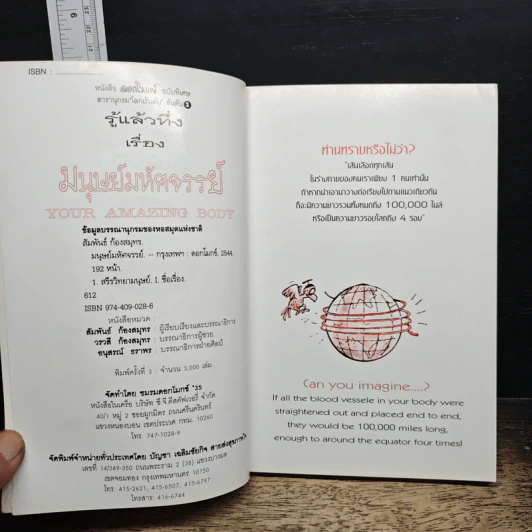 9
23
22
21
ISBN : ......................
หนังสือ ดอกโมกข์ ฉบับพิเศษ
สารานุกรม"โลกเร้นลับ" อันดับ 3
รู้แล้วทึ่ง
เรื่อง
มนุษย์มหัศจรรย์
YOUR AMAZING BODY
ข้อมูลบรรณานุกรมของหอสมุดแห่งชาติ
สัมพันธ์ ก้องสมุทร.
มนุษย์มหัศจรรย์. -- กรุงเทพฯ : ดอกโมกข์, 2544.
192 หน้า.
1. สรีรวิทยามนุษย์. I. ชื่อเรื่อง.
612
ISBN 974-409-028-6
หนังสือหมวด :
สัมพันธ์ ก้องสมุทร : ผู้เรียบเรียงและบรรณาธิการ
วรวสี ก้องสมุทร : บรรณาธิการผู้ช่วย
อนุสรณ์ ธราพร : บรรณาธิการฝ่ายศิลป์
พิมพ์ครั้งที่ 3 : จำนวน 3,000 เล่ม
จัดทำโดย ชมรมดอกโมกข์ '35
หนังสือในเครือ บริษัท ซี.จี.ดีสคัฟเวอรี่ จำกัด
40/1 หมู่ 2 ซอยผูกมิตร ถนนศรีนครินทร์
แขวงหนองบอน เขตประเวศ กทม. 10260
โทร. 747-1028-9
จัดพิมพ์จำหน่ายทั่วประเทศโดย บัญชา เฉลิมชัยกิจ สายส่งสุขภาพใจ
เลขที่ 14/349-350 ถนนพระราม 2 (38) แขวงบางมด
เขตจอมทอง กรุงเทพมหานคร 10150
โทร. 415-2621, 415-6507, 415-6797
โทรสาร. 416-6744
ท่านทราบหรือไม่ว่า?
"เส้นเลือดทุกเส้น
ในร่างกายของคนเราเพียง 1 คนเท่านั้น
ถ้าหากนำเอามาวางต่อเรียงไปตามแนวเดียวกัน
ก็จะมีความยาวรวมทั้งหมดถึง 100,000 ไมล์
หรือเป็นความยาวรอบโลกถึง 4 รอบ"
Can you imagine....?
If all the blood vessele in your body were
straightened out and placed end to end,
they would be 100,000 miles long,
enough to around the equator four times!